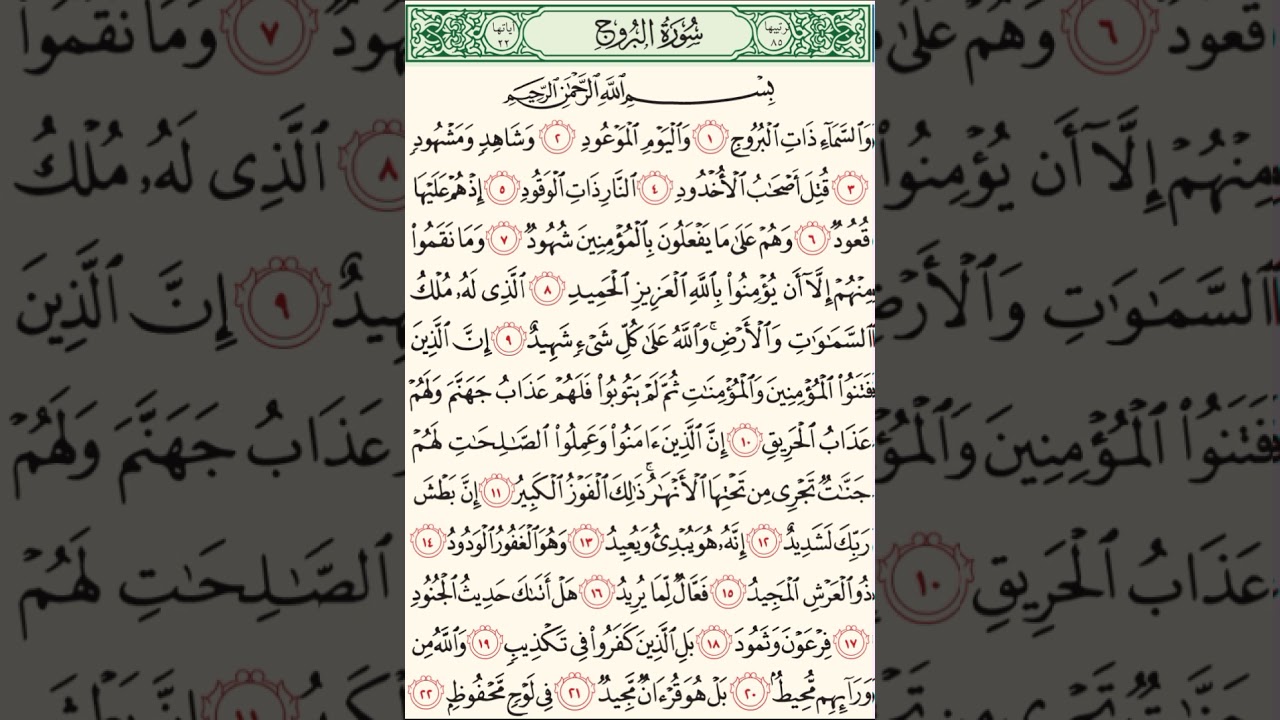 ترتيبها ٨٥ سُورَةُ البُرُوجِ آياتها ٢٢
بِسْمِ ٱللَّهِ ٱلرَّحْمَٰنِ ٱلرَّحِيمِ
وَٱلسَّمَآءِ ذَاتِ ٱلْبُرُوجِ ١ وَٱلْيَوْمِ ٱلْمَوْعُودِ ٢ وَشَاهِدٍ وَمَشْهُودٍ
٣ قُتِلَ أَصْحَٰبُ ٱلْأُخْدُودِ ٤ ٱلنَّارِ ذَاتِ ٱلْوَقُودِ ٥ إِذْ هُمْ عَلَيْهَا
قُعُودٌ ٦ وَهُمْ عَلَىٰ مَا يَفْعَلُونَ بِٱلْمُؤْمِنِينَ شُهُودٌ ٧ وَمَا نَقَمُوا۟
مِنْهُمْ إِلَّآ أَن يُؤْمِنُوا۟ بِٱللَّهِ ٱلْعَزِيزِ ٱلْحَمِيدِ ٨ ٱلَّذِى لَهُۥ مُلْكُ
ٱلسَّمَٰوَٰتِ وَٱلْأَرْضِ ۚ وَٱللَّهُ عَلَىٰ كُلِّ شَىْءٍ شَهِيدٌ ٩ إِنَّ ٱلَّذِينَ
فَتَنُوا۟ ٱلْمُؤْمِنِينَ وَٱلْمُؤْمِنَٰتِ ثُمَّ لَمْ يَتُوبُوا۟ فَلَهُمْ عَذَابُ جَهَنَّمَ وَلَهُمْ
عَذَابُ ٱلْحَرِيقِ ١٠ إِنَّ ٱلَّذِينَ ءَامَنُوا۟ وَعَمِلُوا۟ ٱلصَّٰلِحَٰتِ لَهُمْ
جَنَّٰتٌ تَجْرِى مِن تَحْتِهَا ٱلْأَنْهَٰرُ ۚ ذَٰلِكَ ٱلْفَوْزُ ٱلْكَبِيرُ ١١ إِنَّ بَطْشَ
رَبِّكَ لَشَدِيدٌ ١٢ إِنَّهُۥ هُوَ يُبْدِئُ وَيُعِيدُ ١٣ وَهُوَ ٱلْغَفُورُ ٱلْوَدُودُ ١٤
ذُو ٱلْعَرْشِ ٱلْمَجِيدُ ١٥ فَعَّالٌ لِّمَا يُرِيدُ ١٦ هَلْ أَتَىٰكَ حَدِيثُ ٱلْجُنُودِ
١٧ فِرْعَوْنَ وَثَمُودَ ١٨ بَلِ ٱلَّذِينَ كَفَرُوا۟ فِى تَكْذِيبٍ ١٩ وَٱللَّهُ مِن
وَرَآئِهِم مُّحِيطٌۢ ٢٠ بَلْ هُوَ قُرْءَانٌ مَّجِيدٌ ٢١ فِى لَوْحٍ مَّحْفُوظٍۭ ٢٢